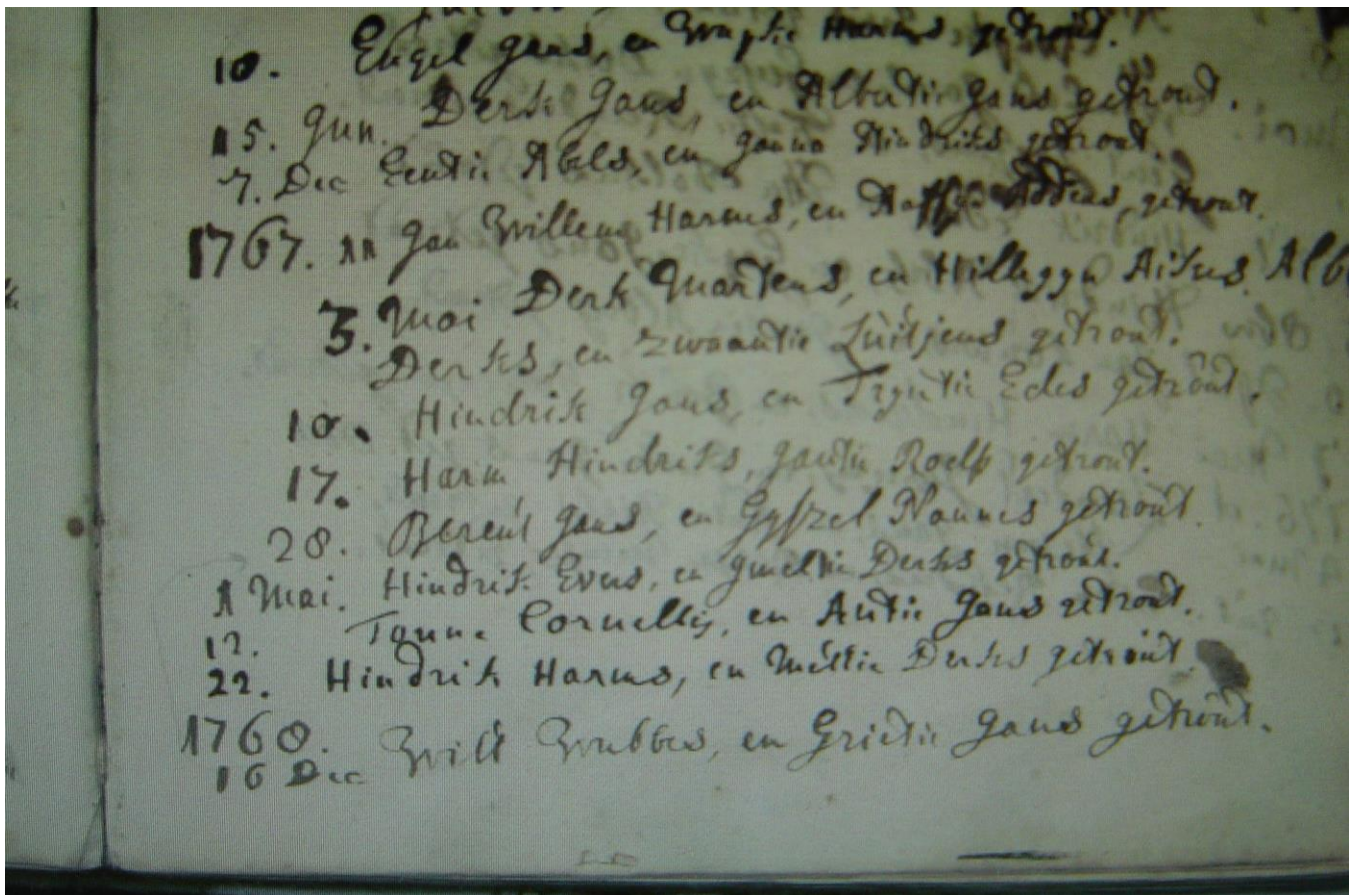 10. Engel Jans, en Harms getrout.
15. Jun. Derk Jans, en Albertie Jans getrout.
7. Dec Eentie Abels, en Janna Hindriks getrout.
1767. Jan Willem Harms, en Addens, getrout.
3. Mai Derk Martens, en Hilligyn Aikes. Alb
Derks, en Zwaantie Luitjens getrout.
10. Hindrik Jans, en Tryntie Edes getrout.
17. Harm Hindriks, Jantie Roelfs getrout.
28. Berent Jans, en Gyszel Nannes getrout.
1 Mai. Hindrik Evers, en Derks getrout.
12. Cornellis, en Antie Jans getrout.
22. Hindrik Harms, en Derks getrout.
1768. Willt Wubbes, en Grietie Jans getrout.
16 Dec